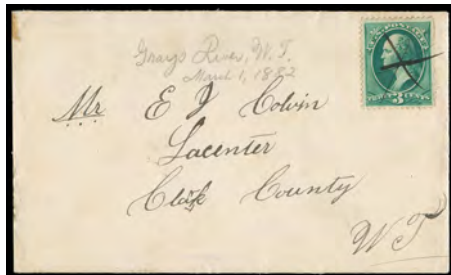 Grays River, W.T.
March 1, 1882
U.S. POSTAGE
THREE 3 CENTS
Mr E J Colvin
Lacenter
Clark County
W T